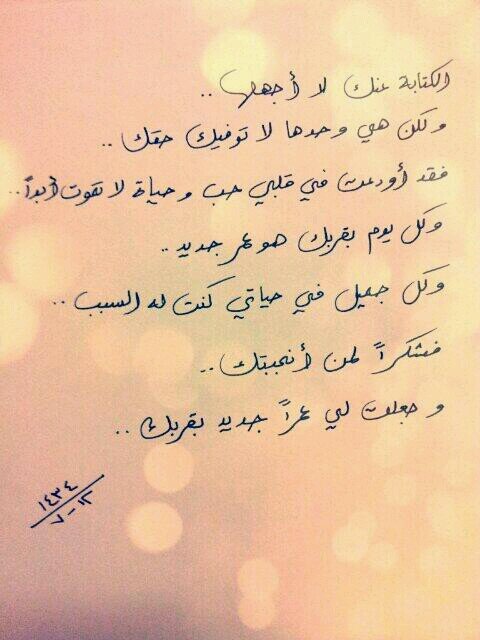 الكتابة عنك لا أجهلها ..
ولكن هي وحدها لا توفيك حقك ..
فقد أودعت في قلبي حب وحياة لا تموت أبداً ..
وكل يوم بقربك هو عمر جديد ..
وكل جميل في حياتي كنت له السبب ..
فشكراً لمن أنجبتك ..
وجعلت لي عمراً جديد بقربك ..
١٤٣٤
٧-١٢